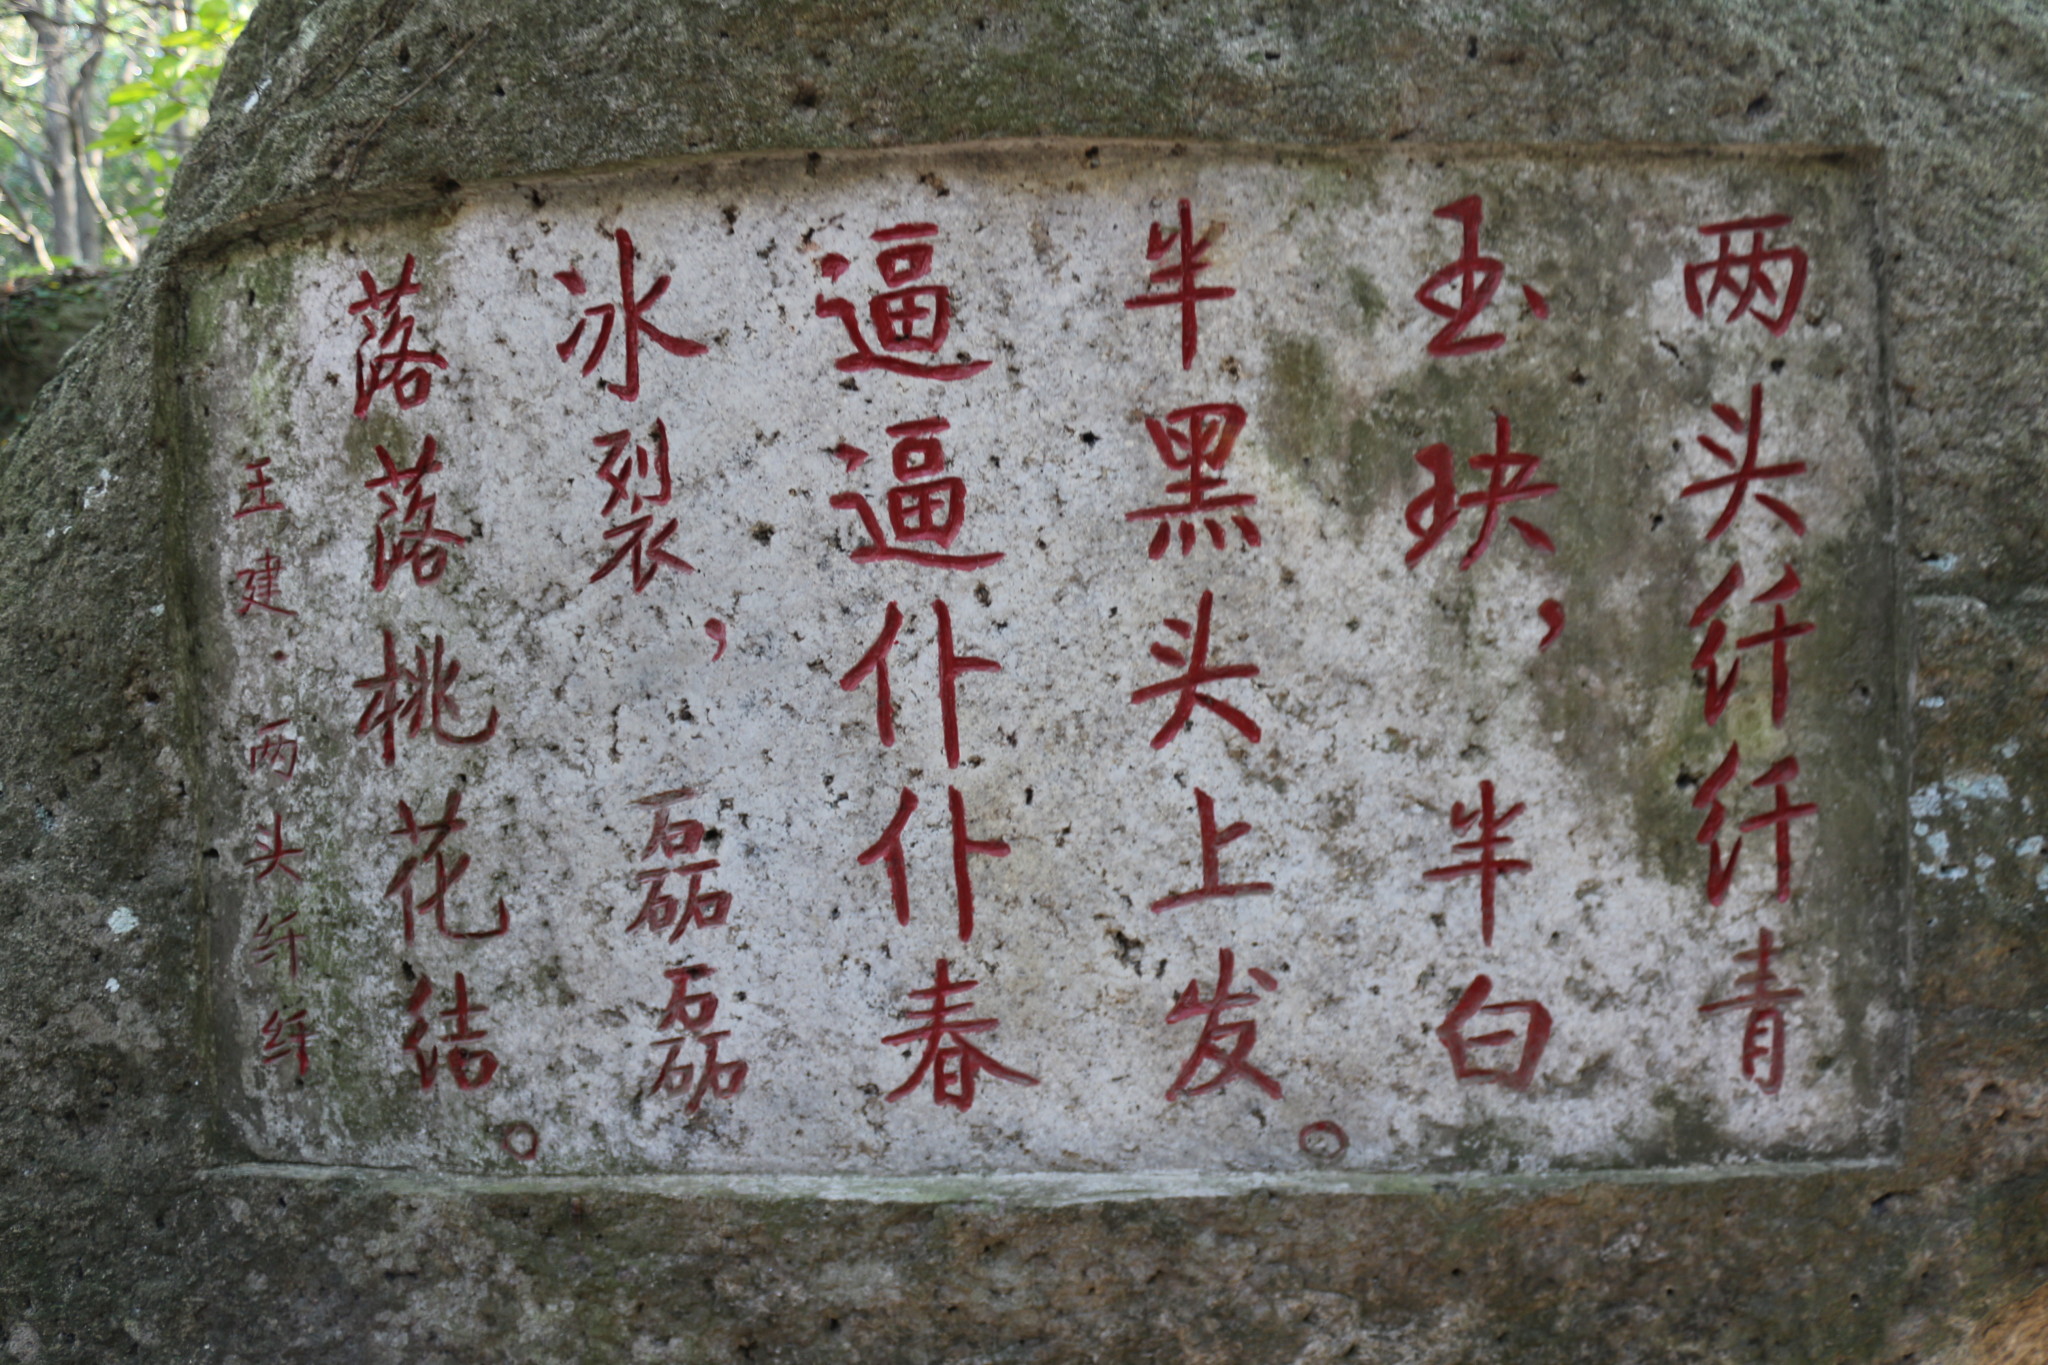 两头纤纤青
玉玦，半白
半黑头上发。
逼逼仆仆春
冰裂，磊磊
落落桃花结。
王建·两头纤纤